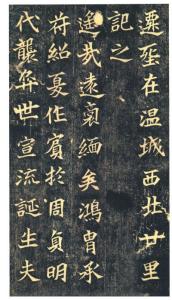 遷葬在温城西北廿里
記之
遙哉遠裔緬矣鴻胄承
苻紹夏作賓於周貞明
代襲弈世宣流誕生夫